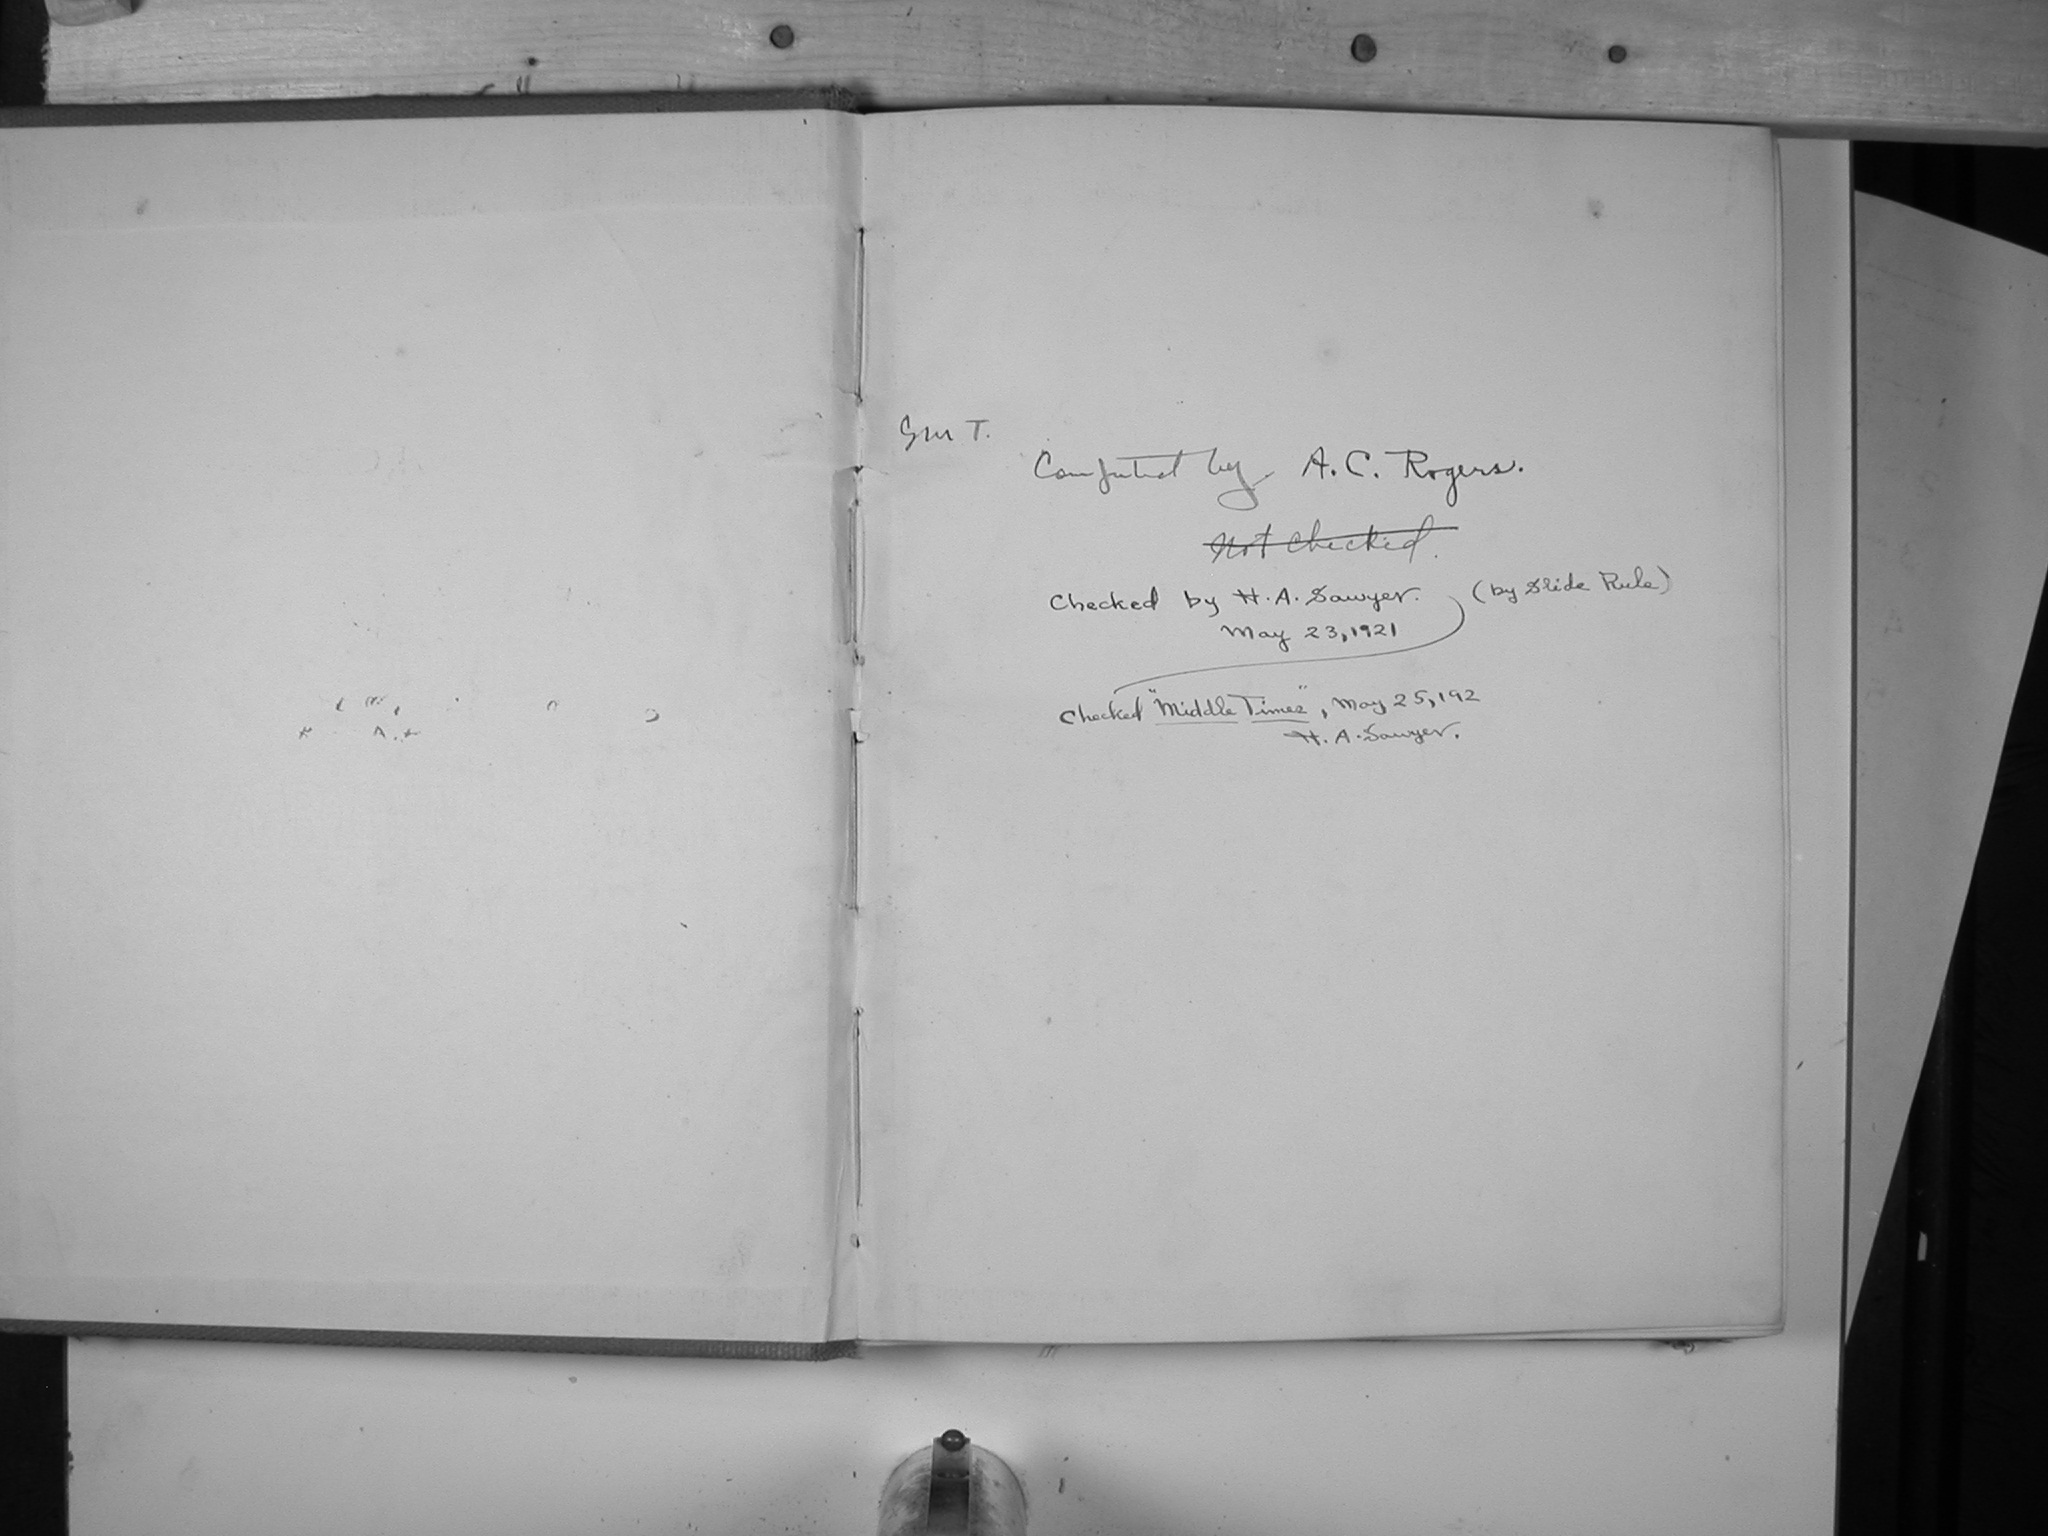 GMT.
Computed by A. C. Rogers.
Not checked.
Checked by H. A. Sawyer. (by Slide Rule)
May 23, 1921
Checked "Middle Times", May 25, 192
H. A. Sawyer.